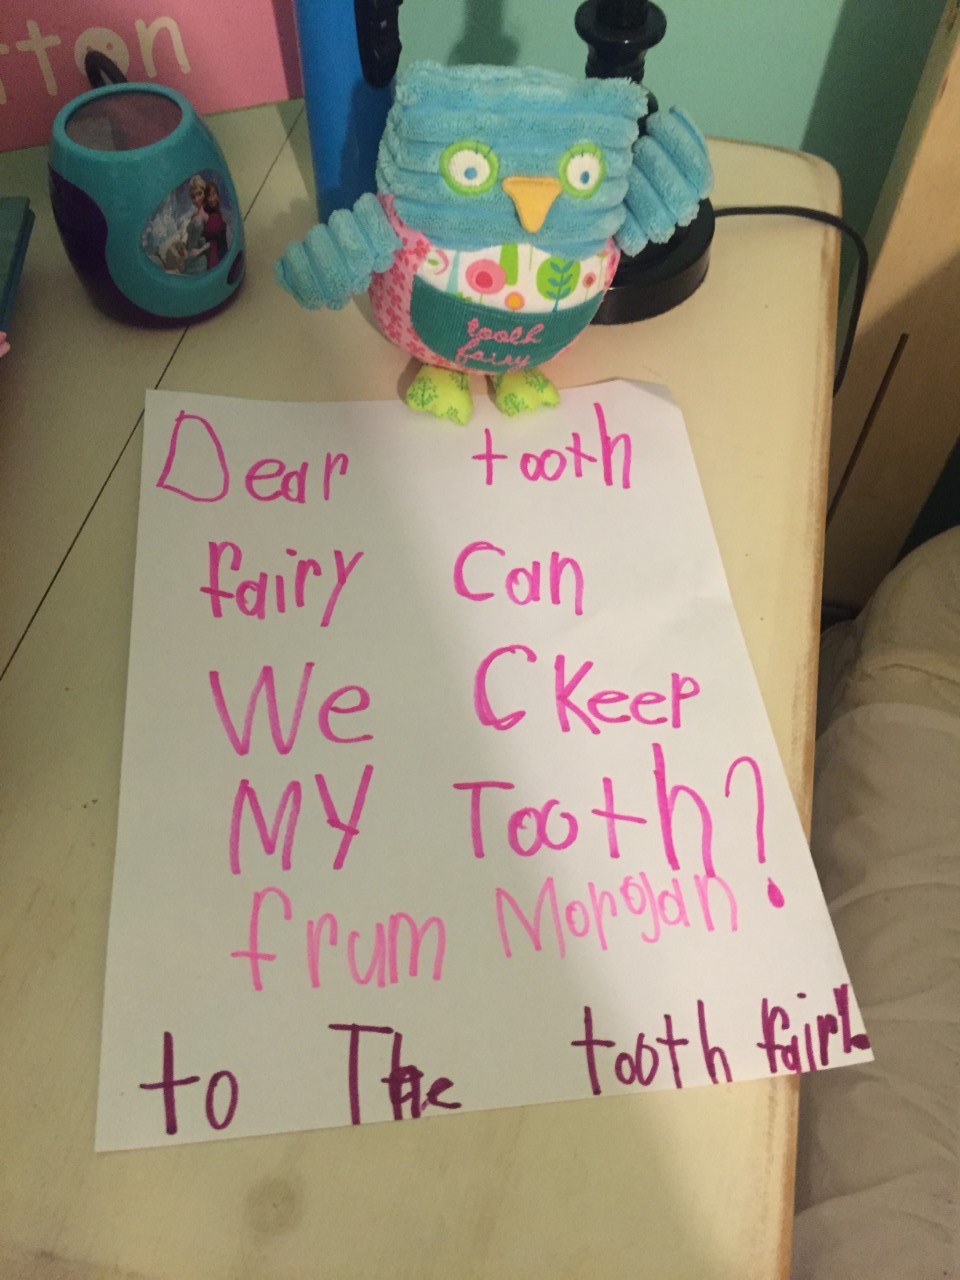 tton
tooth
fairy
Dear tooth
fairy Can
We CKeep
MY Tooth?
frum Morgan
to The tooth fairy